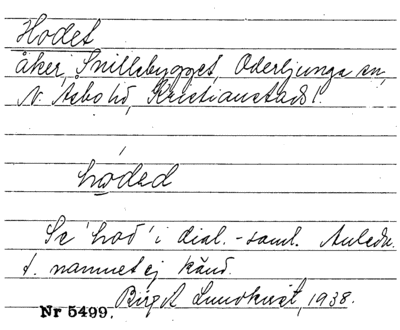 Hodet
åker, Snillsbygget, Oderljunga sn,
N. Åsbo hd, Kristianstads l.
hodəd
Se 'hod' i dial.-saml. Anledn.
t. namnet ej känd.
Birgit Lundkvist, 1938.
Nr 5499.